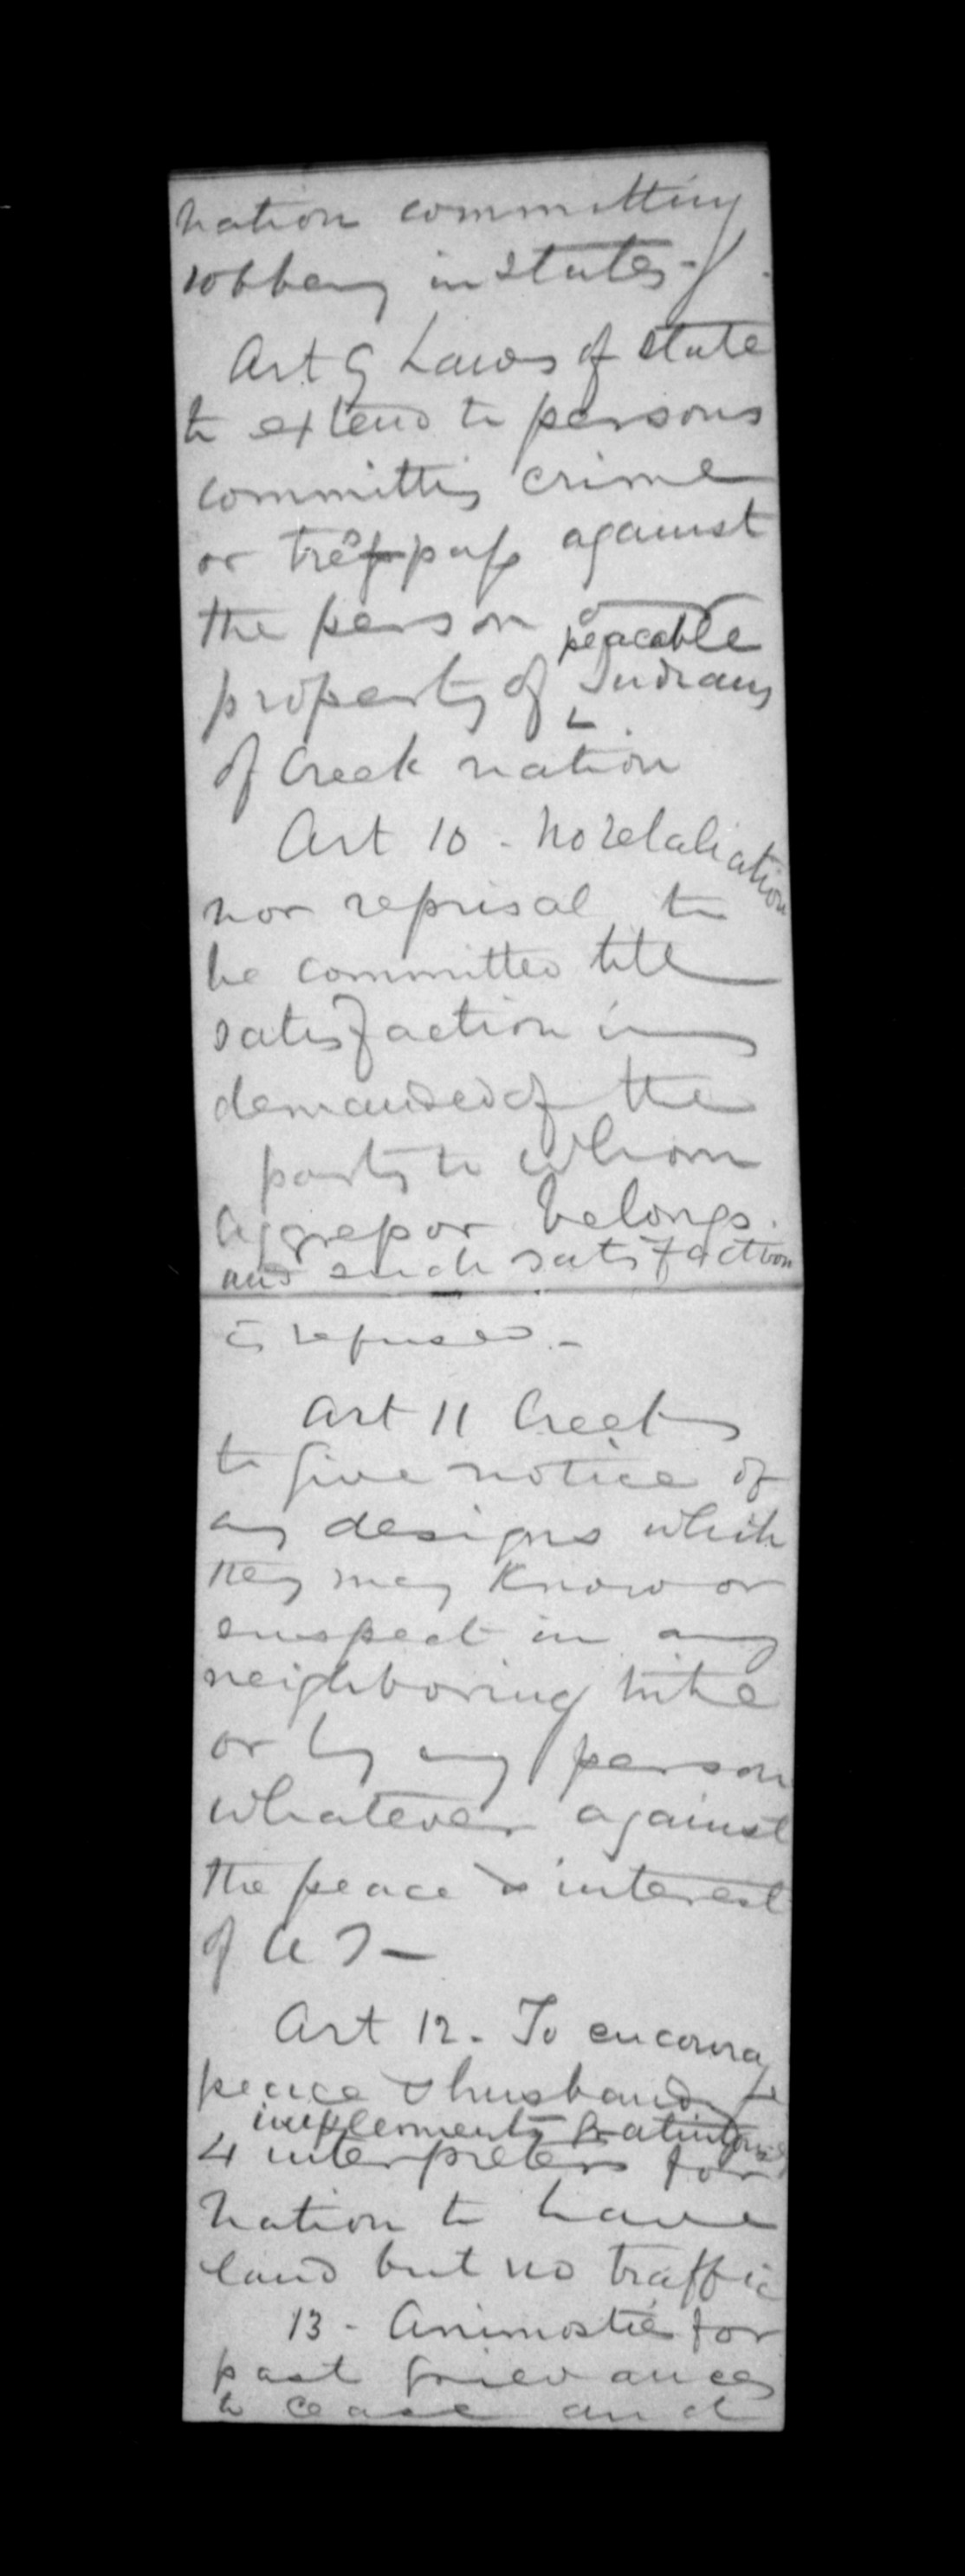 nation committing
robbery in states -
Art 9 Laws of State
to extend to persons
committing crime
or trespass against
the person or
peacable
property of Indians
of Creek nation
Art 10 - No retaliation
nor reprisal to
be committed till
satisfaction is
demanded of the
party to whom
aggressor belongs.
and such satisfaction
is refused. -
Art 11 Creeks
to give notice of
any designs which
they may know or
suspect in any
neighboring tribe
or by any person
whatever against
the peace & interest
of U S -
Art 12. To encourage
peace & husbandry
implements gratuitously
4 interpreters for
Nation to have
land but no traffic
13 - Animosties for
past grievances
to cease and